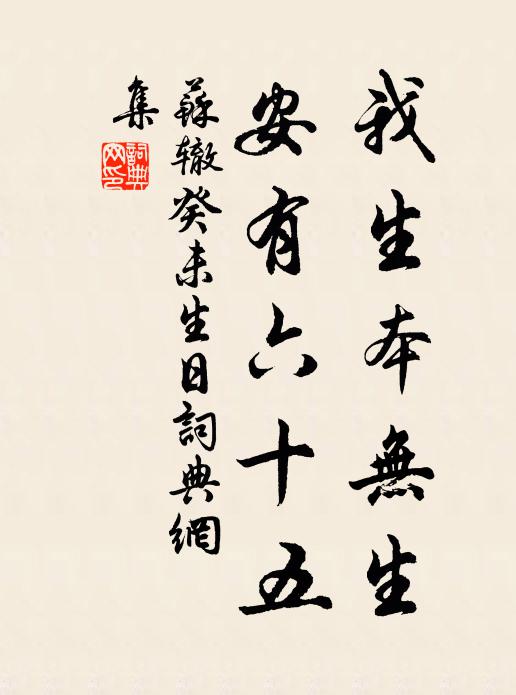 我生本無生
安有六十五
蘇辙癸未生日詞典網
集
詞典
网印